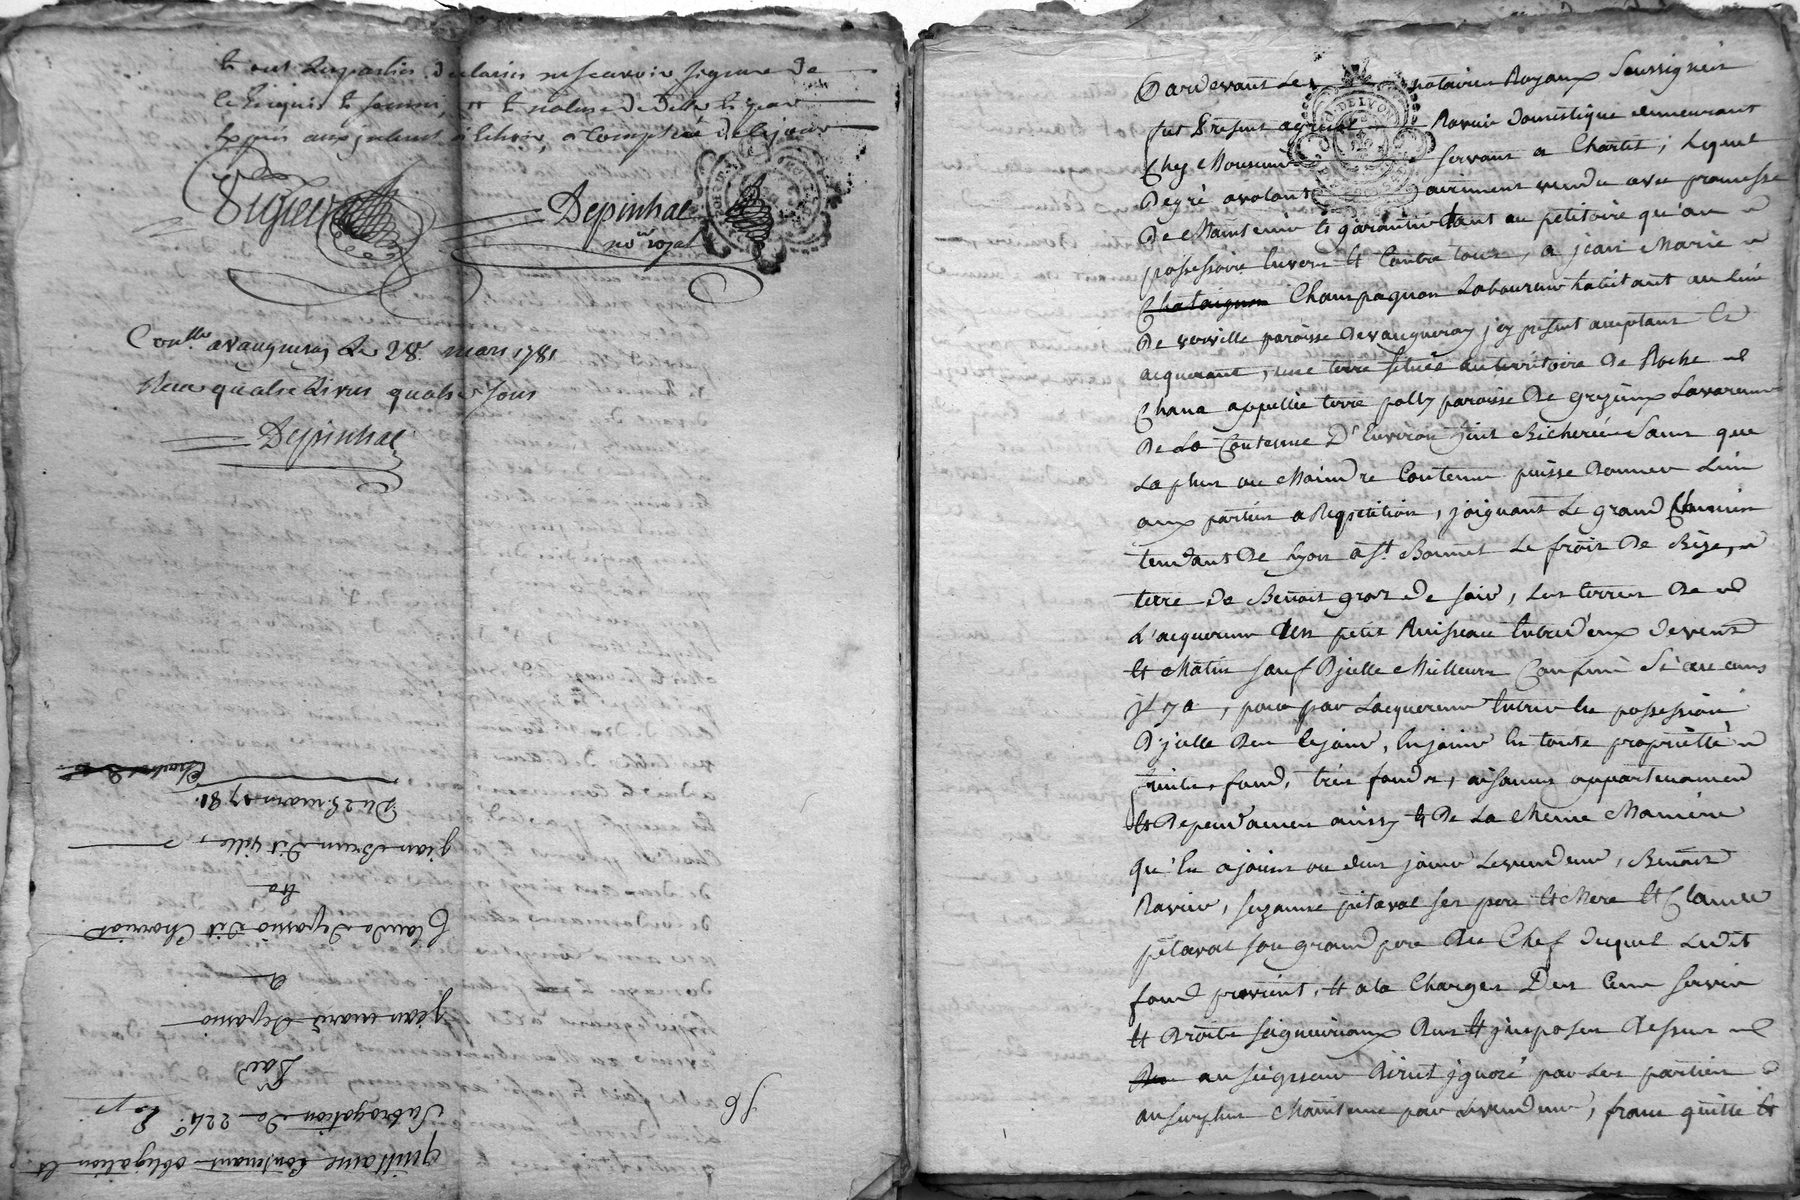 et ont les parties declarés ne scavoir signer de
ce Enquis et sommé, et la minute de
Vigier
Depinhac
no.re royal
Con.lle a vaugneray Le 28. mars 1781
Reçu quatre Livres quatre sous
Depinhac
Du 28 mars 1781.
jean Brun dit ville,
Claude depassio dit Chovriat
a
jean marie Depassio
Par
Subrogation de 224#
quittance Contenant obligation et
56
Pardevant Les notaires Royaux Soussignés
fut Present Ravier domestique demeurant
Chez Monsieur servant a Chartit, Lequel
De gré a volonté a vendu avec promesse
De Maintenir et garantir tant au petitoire qu'au
possessoire Envers et Contre tous, a jean Marie
Chataignon Champagnon Laboureur habitant au Lieu
De verville paroisse De vaugneray jcy présent acceptant et
acquerant, une terre située au territoire De Roche
Chana appellée terre polly paroisse De grezieux Lavarenne
De La Contenue D'Environ huit Bicherées Sans que
La plus ou Moindre Contenue puisse Donner Lieu
aux parties a Repetition, joignant Le grand Chemin
tendant De Lyon a S.t Bonnet Le froit De Bize,
terre de Benoit gros de soir, Les terres De
L'acquereur Un petit Ruisseau Entre d'eux de vent
et Matin sauf D'jcelle Meilleurs Confins Si aucuns
jl y a, pour par Lacquereur Entrer En possession
D'jcelle Des ce jour, En jouir En toute propriété
fruits, fond, très fonds, aisances appartenances
et Dependances ainsy et De La Meme Maniere
qu'En a jouis ou deus jouir Le vendeur, Benoit
Ravier, suzanne pétavat ses pere et Mere et Claude
pétavat son grand pere Du Chef duquel Ledit
fond provient, et a la Charges Des Cens Servis
et Droits seigneuriaux Dus et jmposés Dessus
au seigneur Direct jgnoré par Les parties
au surplus Maintenue par Le vendeur, franc quitte et